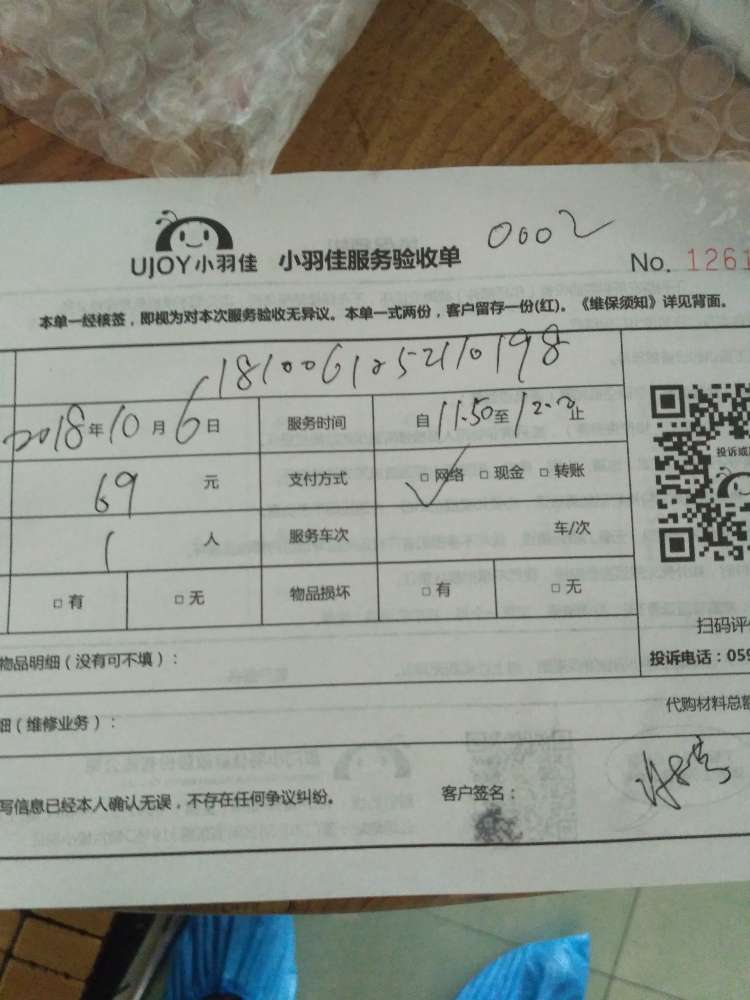 UJOY小羽佳 小羽佳服务验收单 0002
No. 1261
本单一经核签，即视为对本次服务验收无异议。本单一式两份，客户留存一份(红)。《维保须知》详见背面。
2018年10月6日 服务时间 自11.50至 止
69 元 支付方式 □网络 □现金 □转账
1 人 服务车次 车/次
□有 □无 物品损坏 □有 □无
投诉或
扫码评
物品明细（没有可不填）：
投诉电话：059
代购材料总额
细（维修业务）：
写信息已经本人确认无误，不存在任何争议纠纷。 客户签名：